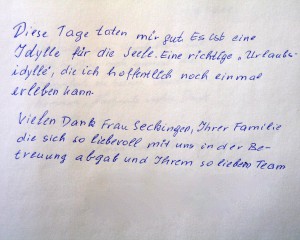 Diese Tage taten mir gut. Es ist eine
Idylle für die Seele. Eine richtige „Urlaubs-
idylle", die ich hoffentlich noch einmal
erleben kann.
Vielen Dank Frau Seckingen, Ihrer Familie
die sich so liebevoll mit uns in der Be-
treuung abgab und Ihrem so lieben Team